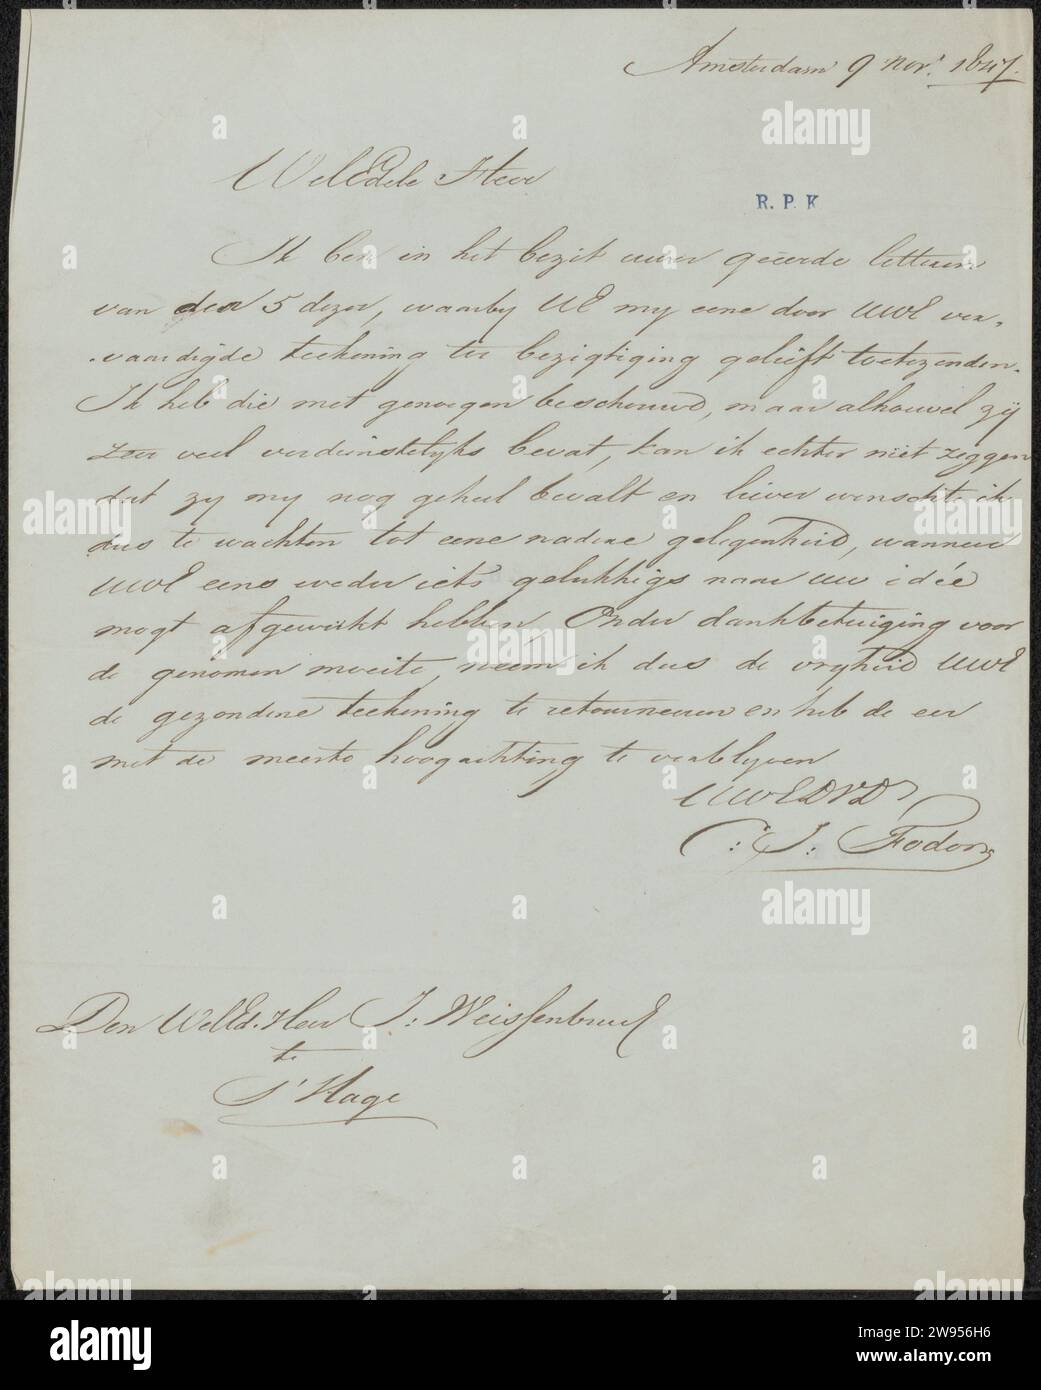 Amsterdam 9 Nov.r 1847.
WelEdele Heer
R. P. K
Ik ben in het bezit uwer geëerde letteren
van den 5 dezer, waarby UE my eene door UWE ver-
vaardigde teekening ter bezigtiging gelieft toetezenden.
Ik heb die met genoegen beschouwd, maar alhouwel zij
zeer veel verdienstelyks bevat, kan ik echter niet zeggen
dat zy my nog geheel bevalt en liever wenschte ik
dus te wachten tot eene nadere gelegenheid, wanneer
UWE eens weder iets gelukkigs naar uw idée
mogt afgewerkt hebben, Onder dankbetuiging voor
de genomen moeite, neem ik dus de vryheid UWE
de gezondene teekening te retourneeren en heb de eer
met de meeste hoogachting te verblyven
UWEDVD
C: J: Fodor
Den WelEd. Heer J: Weissenbruch
te
S'Hage
alamy
Image ID: 2W956H6
www.alamy.com